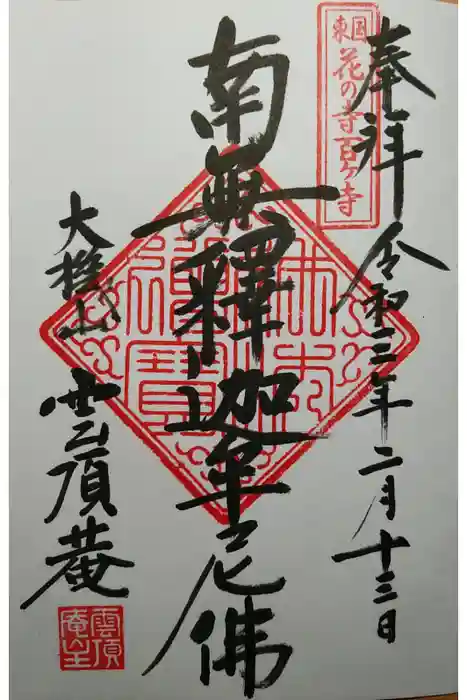 奉拝 令和三年二月十三日
東国
花の寺百ヶ寺
南無釋迦牟尼佛
佛法
僧寶
大機山 雲頂菴
雲頂
庵主